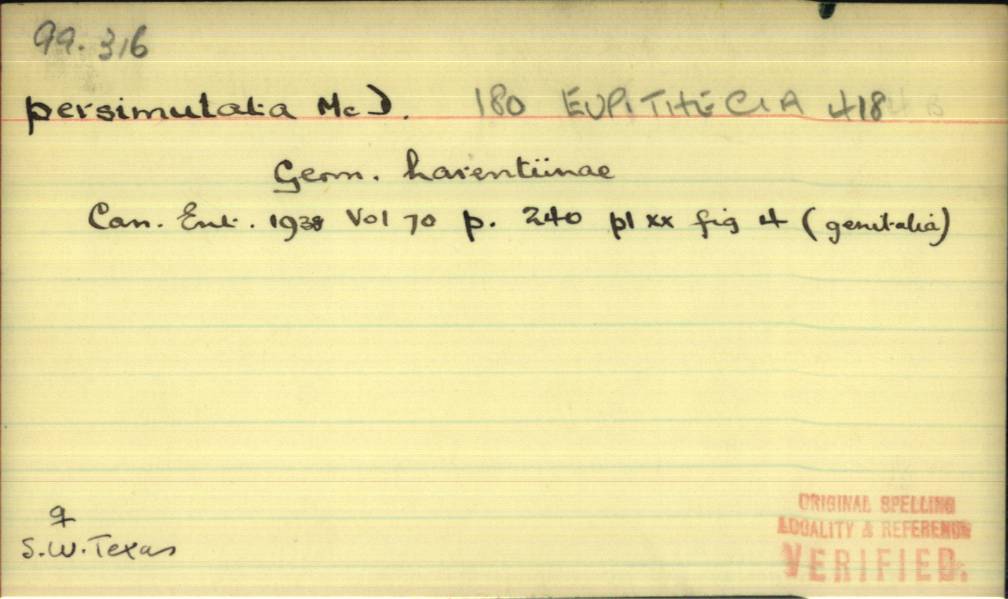 99.316
persimulata McD. 180 EUPITHECIA 418
Geom. Larentiinae
Can. Ent. 1938 Vol 70 p. 240 pl xx fig 4 (genitalia)
♀
S.W. Texas
ORIGINAL SPELLING
LOCALITY & REFERENCE
VERIFIED.